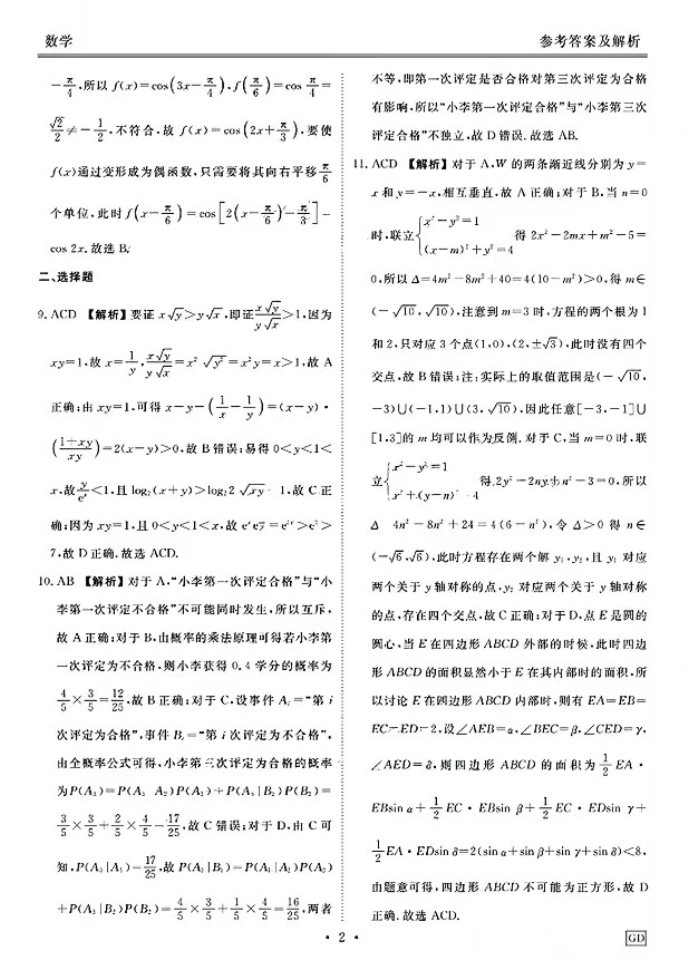 数学
参考答案及解析
-π/4,所以 f(x)=cos(3x-π/4),f(π/6)=cos π/4=
√2/2≠-1/2,不符合,故 f(x)=cos(2x+π/3),要使
f(x)通过变形成为偶函数,只需要将其向右平移π/6
个单位,此时 f(x-π/6)=cos[2(x-π/6)-π/3]-
cos 2x.故选 B.
二、选择题
9. ACD 【解析】要证 x√y>y√x,即证x√y/y√x>1,因为
xy=1,故 x=1/y,x√y/y√x=x²√y²=x²y=x>1,故 A
正确;由 xy=1,可得 x-y-(1/x-1/y)=(x-y)·
(1+xy/xy)=2(x-y)>0,故 B 错误;易得 0<y<1<
x,故y/eˣ<1,且 log₂(x+y)>log₂2√xy 1,故 C 正
确;因为 xy=1,且 0<y<1<x,故
7,故 D 正确.故选 ACD.
10. AB 【解析】对于 A,“小李第一次评定合格”与“小
李第一次评定不合格”不可能同时发生,所以互斥,
故 A 正确;对于 B,由概率的乘法原理可得若小李第
一次评定为不合格,则小李获得 0.4 学分的概率为
4/5×3/5=12/25,故 B 正确;对于 C,设事件 Aᵢ=“第 i
次评定为合格”,事件 Bᵢ=“第 i 次评定为不合格”,
由全概率公式可得,小李第三次评定为合格的概率
为P(A₃)=P(A₃ A₂)P(A₂)+P(A₃|B₂)P(B₂)=
3/5×3/5+2/5×4/5=17/25,故 C 错误;对于 D,由 C 可
知,P(A₃|A₁)=17/25,故 P(A₃|B₁)=P(A₃|A₂)P(A₂)
+P(A₃|B₂)P(B₂)=4/5×3/5+1/5×4/5=16/25,两者
不等,即第一次评定是否合格对第三次评定为合格
有影响,所以“小李第一次评定合格”与“小李第三次
评定合格”不独立,故 D 错误.故选 AB.
11. ACD 【解析】对于 A,W 的两条渐近线分别为 y=
x 和 y=-x,相互垂直,故 A 正确;对于 B,当 n=0
时,联立{x²-y²=1
(x-m)²+y²=4 得 2x²-2mx+m²-5=
0,所以 Δ=4m²-8m²+40=4(10-m²)>0,得 m∈
(-√10,√10),注意到 m=3 时,方程的两个根为 1
和 2,只对应 3 个点(1,0),(2,±√3),此时没有四个
交点,故 B 错误;注:实际上的取值范围是(-√10,
-3)∪(-1,1)∪(3,√10),因此任意[-3,-1]∪
[1,3]的 m 均可以作为反例.对于 C,当 m=0 时,联
立{x²-y²=1
x²+(y-n)² 4 得 2y²-2ny+n²-3=0,所以
Δ 4n²-8n²+24=4(6-n²),令 Δ>0 得 n∈
(-√6,√6),此时方程存在两个解 y₁,y₂,且 y₁ 对应
两个关于 y 轴对称的点,y₂ 对应两个关于 y 轴对称
的点,存在四个交点,故 C 正确;对于 D,点 E 是圆的
圆心,当 E 在四边形 ABCD 外部的时候,此时四边
形 ABCD 的面积显然小于 E 在其内部时的面积,所
以讨论 E 在四边形 ABCD 内部时,则有 EA=EB=
EC=ED=2,设∠AEB=α,∠BEC=β,∠CED=γ,
∠AED=δ,则四边形 ABCD 的面积为 1/2 EA·
EBsin α+1/2 EC·EBsin β+1/2 EC·EDsin γ+
1/2 EA·EDsin δ=2(sin α+sin β+sin γ+sin δ)<8,
由题意可得,四边形 ABCD 不可能为正方形,故 D
正确.故选 ACD.
·2·
GD